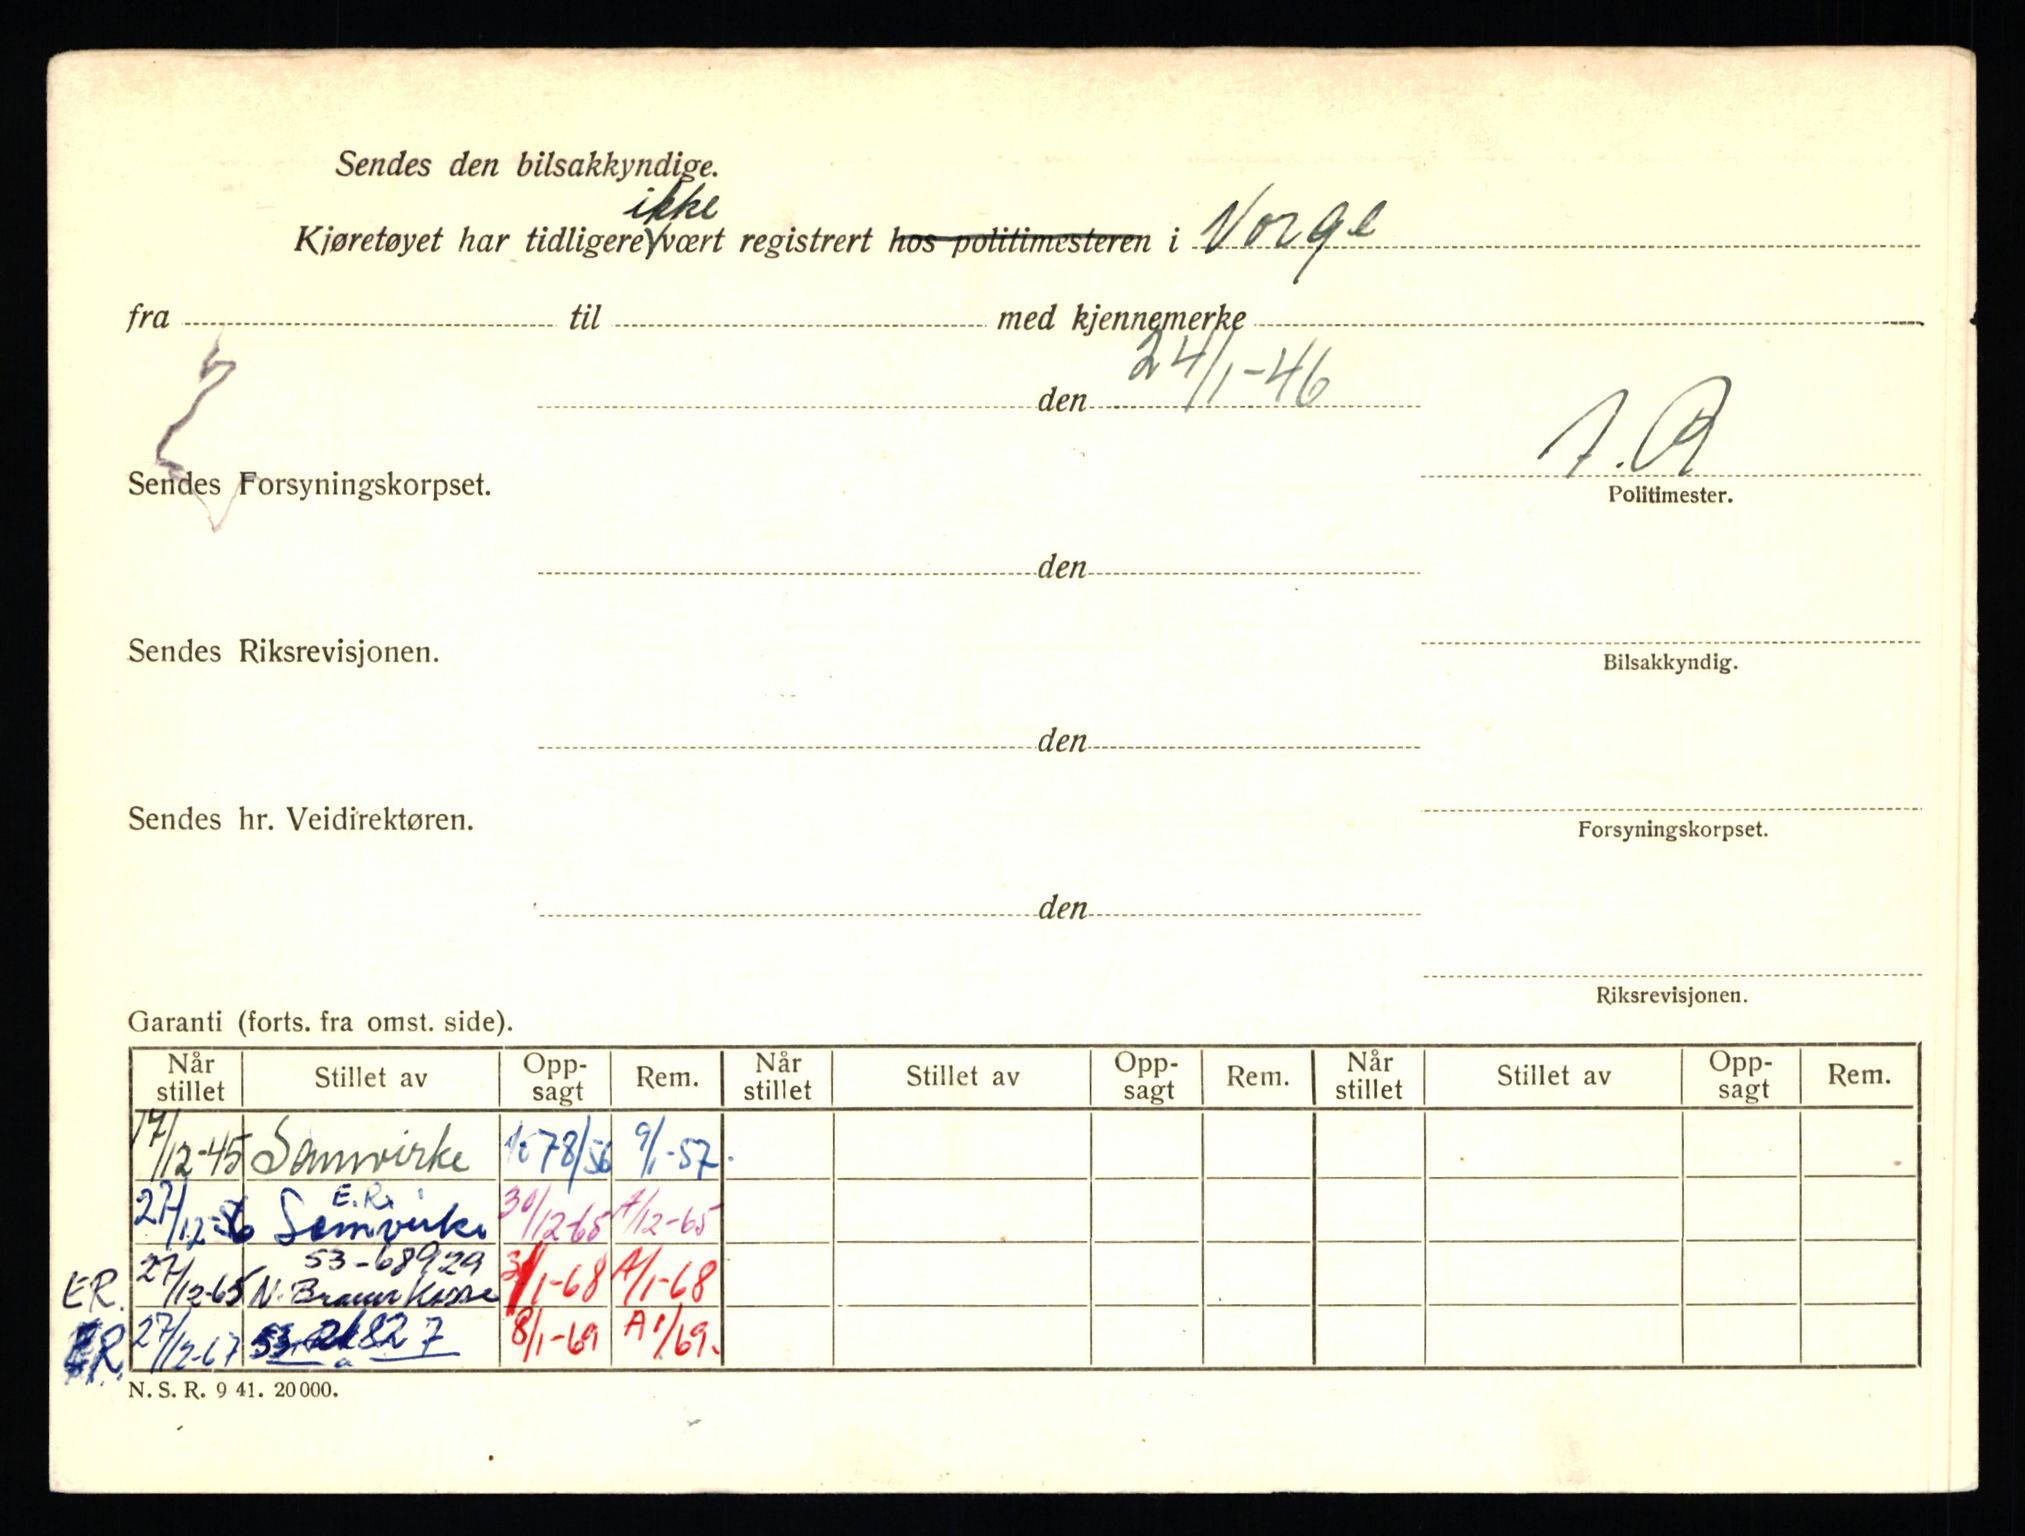 Sendes den bilsakkyndige.
ikke
Kjøretøyet har tidligere vært registrert hos politimesteren i Norge
fra til med kjennemerke
den 24/1-46
Sendes Forsyningskorpset.
Politimester.
den
Sendes Riksrevisjonen.
Bilsakkyndig.
den
Sendes hr. Veidirektøren.
Forsyningskorpset.
den
Riksrevisjonen.
Garanti (forts. fra omst. side).
Når stillet Stillet av Opp-sagt Rem. Når stillet Stillet av Opp-sagt Rem. Når stillet Stillet av Opp-sagt Rem.
17/12-45 Samvirke 78/56 9/1-57.
E.R.
27/12-56 Samvirke 30/12-65 A/12-65
53-68929
ER. 27/12-65 N. Brann Kasse 31/1-68 A/1-68
ER. 27/12-67 8/1-69 A 1/69.
N. S. R. 9 41. 20 000.